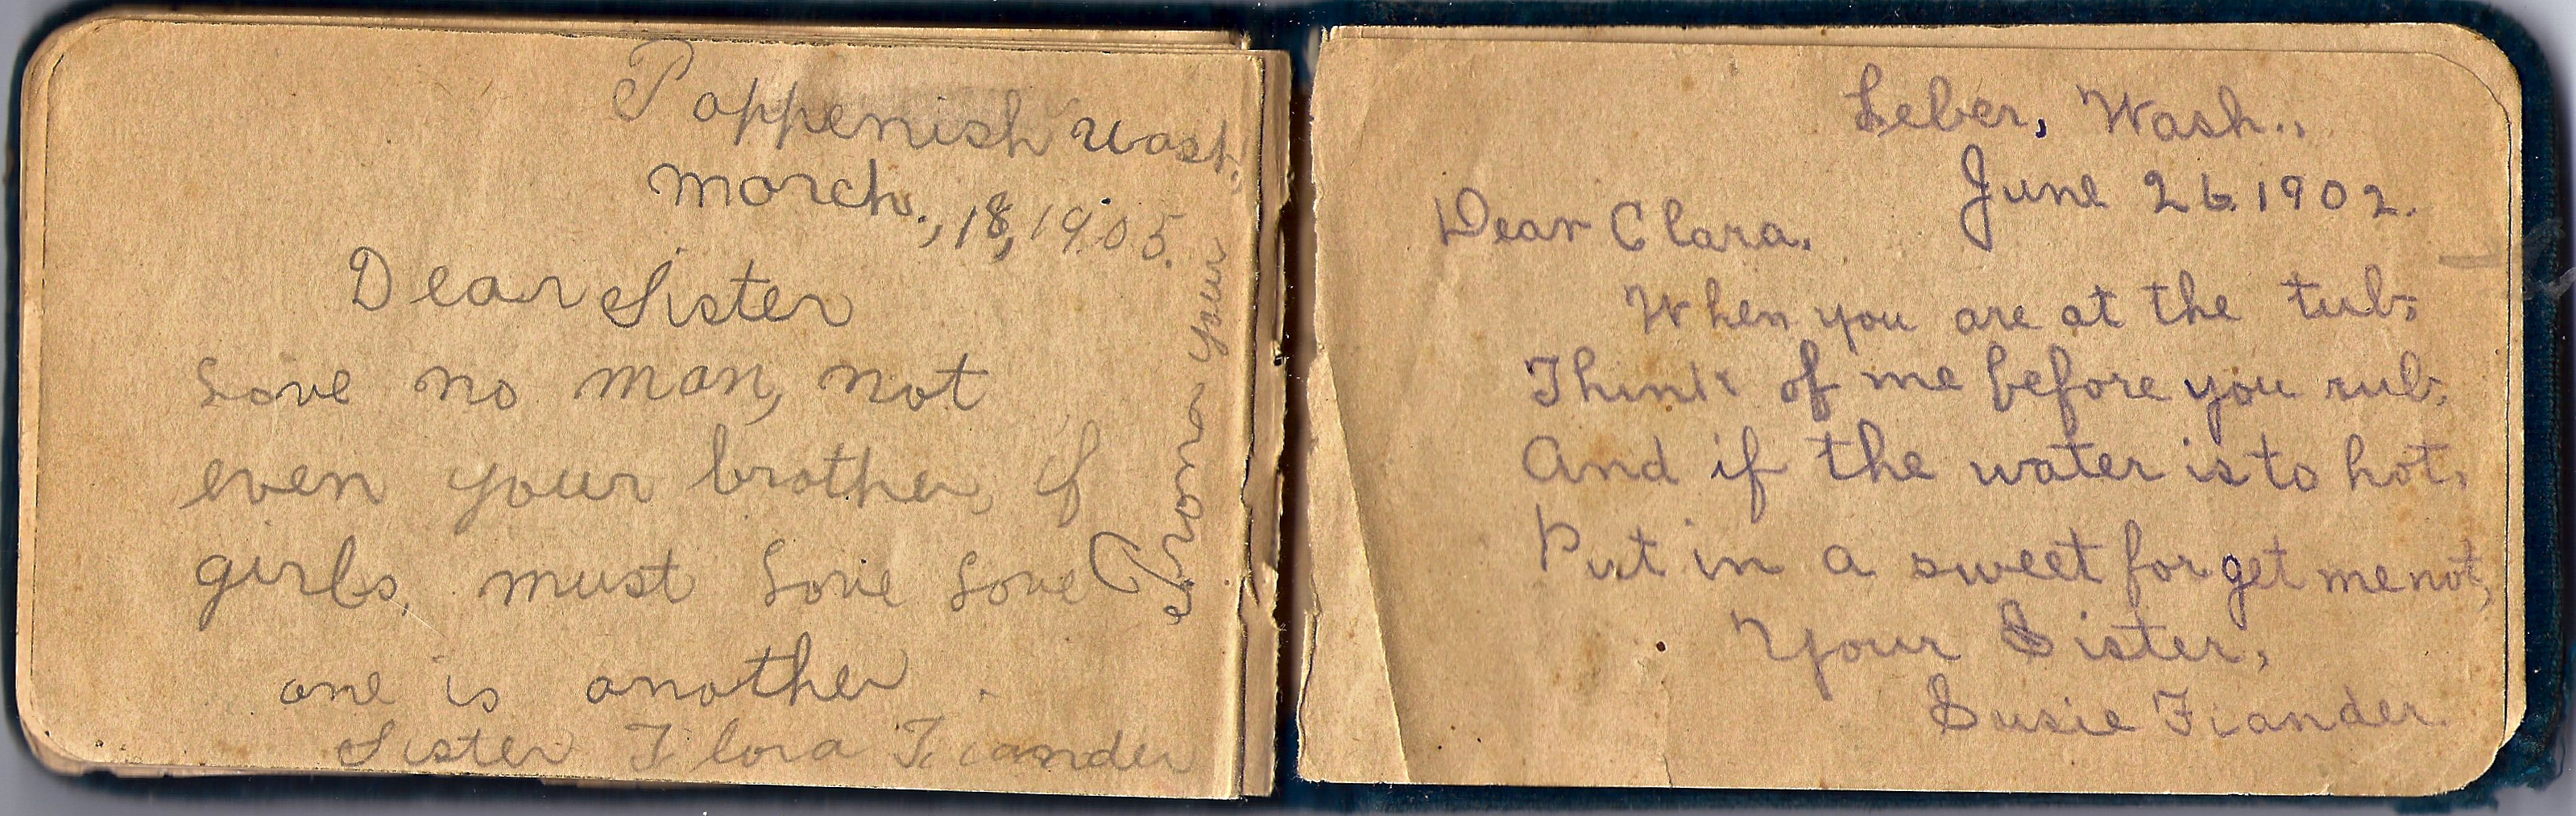 Toppenish Wash.
March., 18, 1905.
Dear Sister
Love no man, not
even your brother, if
girls, must love love
one is another.
From your
Sister Flora Fiander
Leber, Wash.,
June 26 1902.
Dear Clara.
When you are at the tub,
Think of me before you rub,
And if the water is to hot,
Put in a sweet forget me not,
Your Sister,
Susie Fiander.